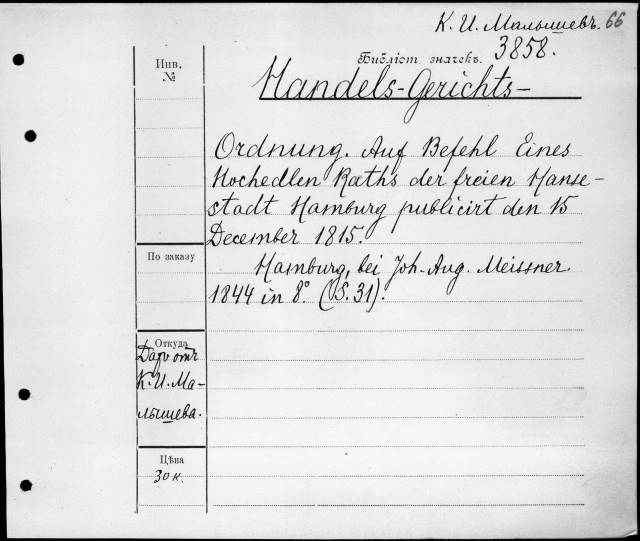 К. И. Малышевъ. 66
Библіот. значекъ. 3858.
Инв.
№
Handels-Gerichts-
Ordnung. Auf Befehl Eines
Hochedlen Raths der freien Hanse-
stadt Hamburg publicirt den 15
December 1815.
По заказу
Hamburg, bei Joh. Aug. Meissner.
1844 in 8°. (S. 31).
Откуда
Даръ отъ
К. И. Ма-
лышева.
Цѣна
30 к.